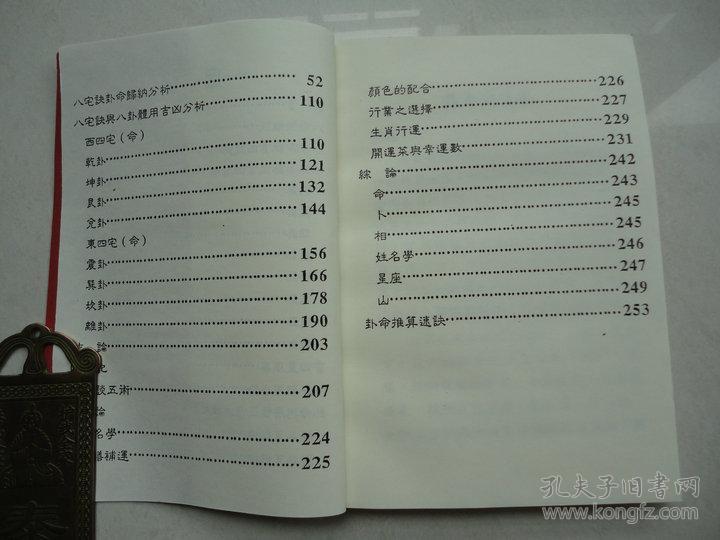 八宅訣卦命歸納分析 52
八宅訣與八卦體用吉凶分析 110
西四宅（命）
乾卦 110
坤卦 121
艮卦 132
兌卦 144
東四宅（命）
震卦 156
巽卦 166
坎卦 178
離卦 190
論 203
談五術 207
論
名學 224
補運 225
顏色的配合 226
行業之選擇 227
生肖行運 229
開運菜與幸運數 231
綜 論 242
命 243
卜 245
相 245
姓名學 246
星座 247
山 249
卦命推算速訣 253
孔夫子旧书网
www.kongfz.com